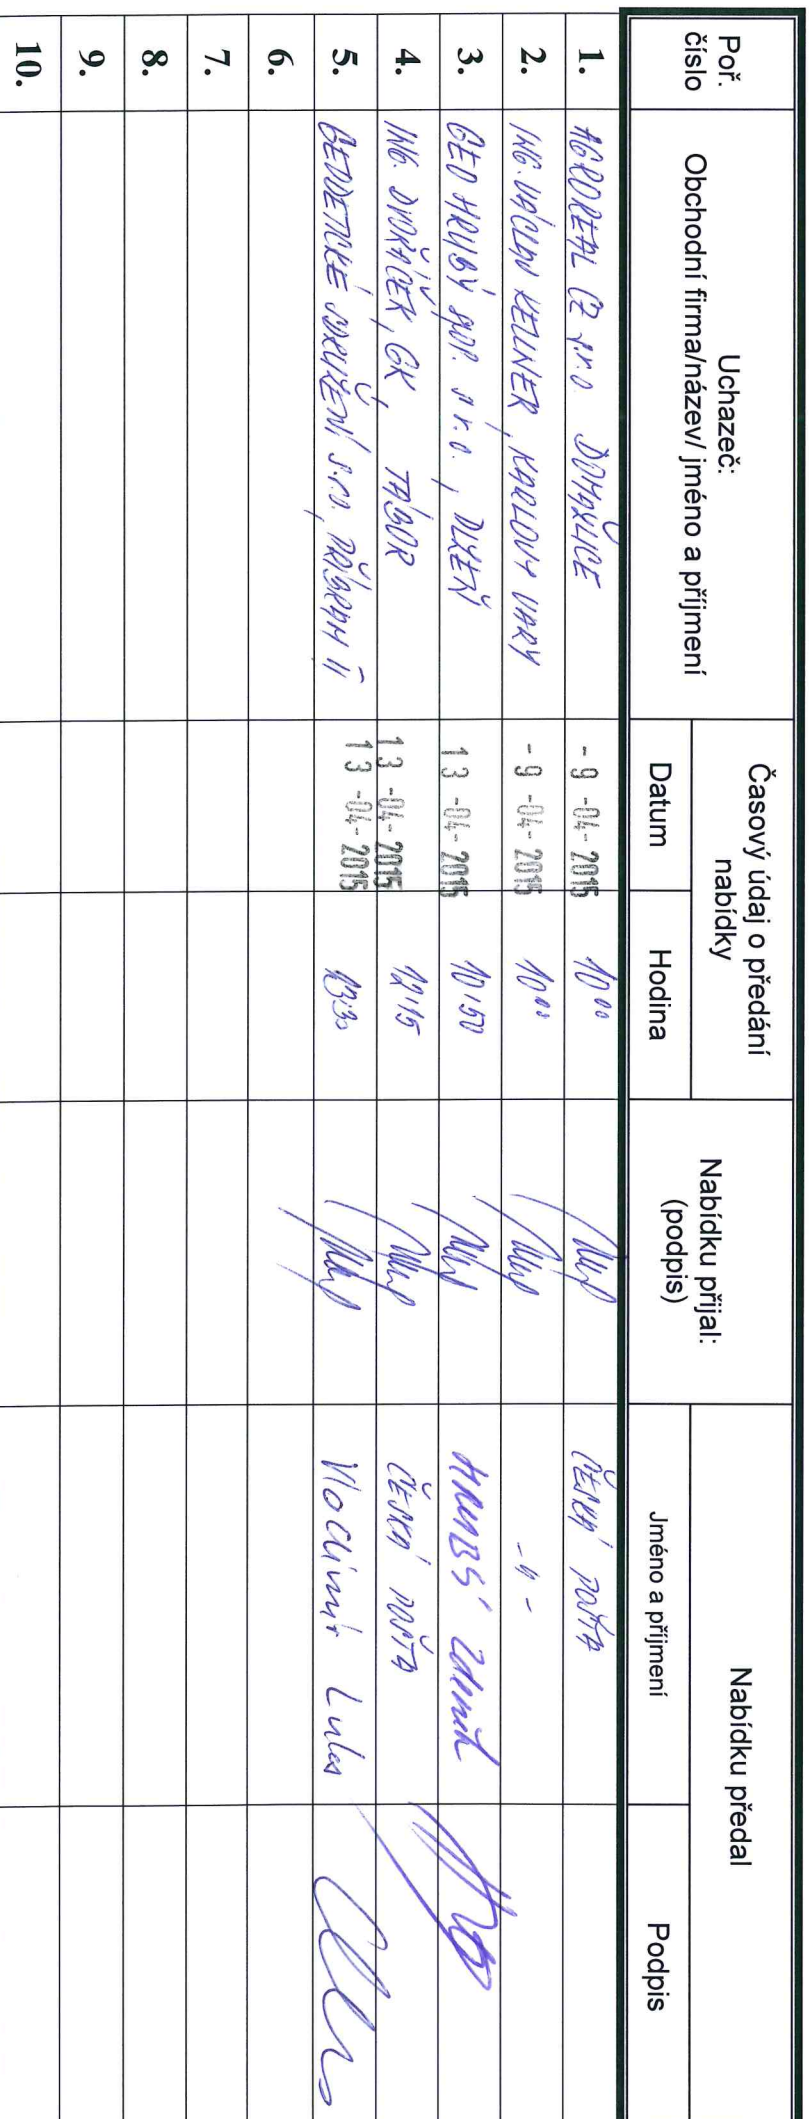 Poř. číslo | Uchazeč: Obchodní firma/název/ jméno a příjmení | Časový údaj o předání nabídky | Nabídku přijal: (podpis) | Nabídku předal
Datum | Hodina | Jméno a příjmení | Podpis
1. AGROREAL CZ s.r.o DOMAŽLICE - 9 -04- 2015 10⁰⁰ ČESKÁ POŠTA
2. ING. VÁCLAV KELLNER, KARLOVY VARY - 9 -04- 2015 10⁰⁰ - " -
3. GEO HRUBÝ spol. s r.o., PLZEŇ 13 -04- 2015 10:50 HRUBÝ Zdeněk
4. ING. DVOŘÁČEK, GK, TÁBOR 13 -04- 2015 12:15 ČESKÁ POŠTA
5. GEODETICKÉ SDRUŽENÍ s.r.o., PŘÍBRAM II 13 -04- 2015 13:30 Vladimír
6.
7.
8.
9.
10.